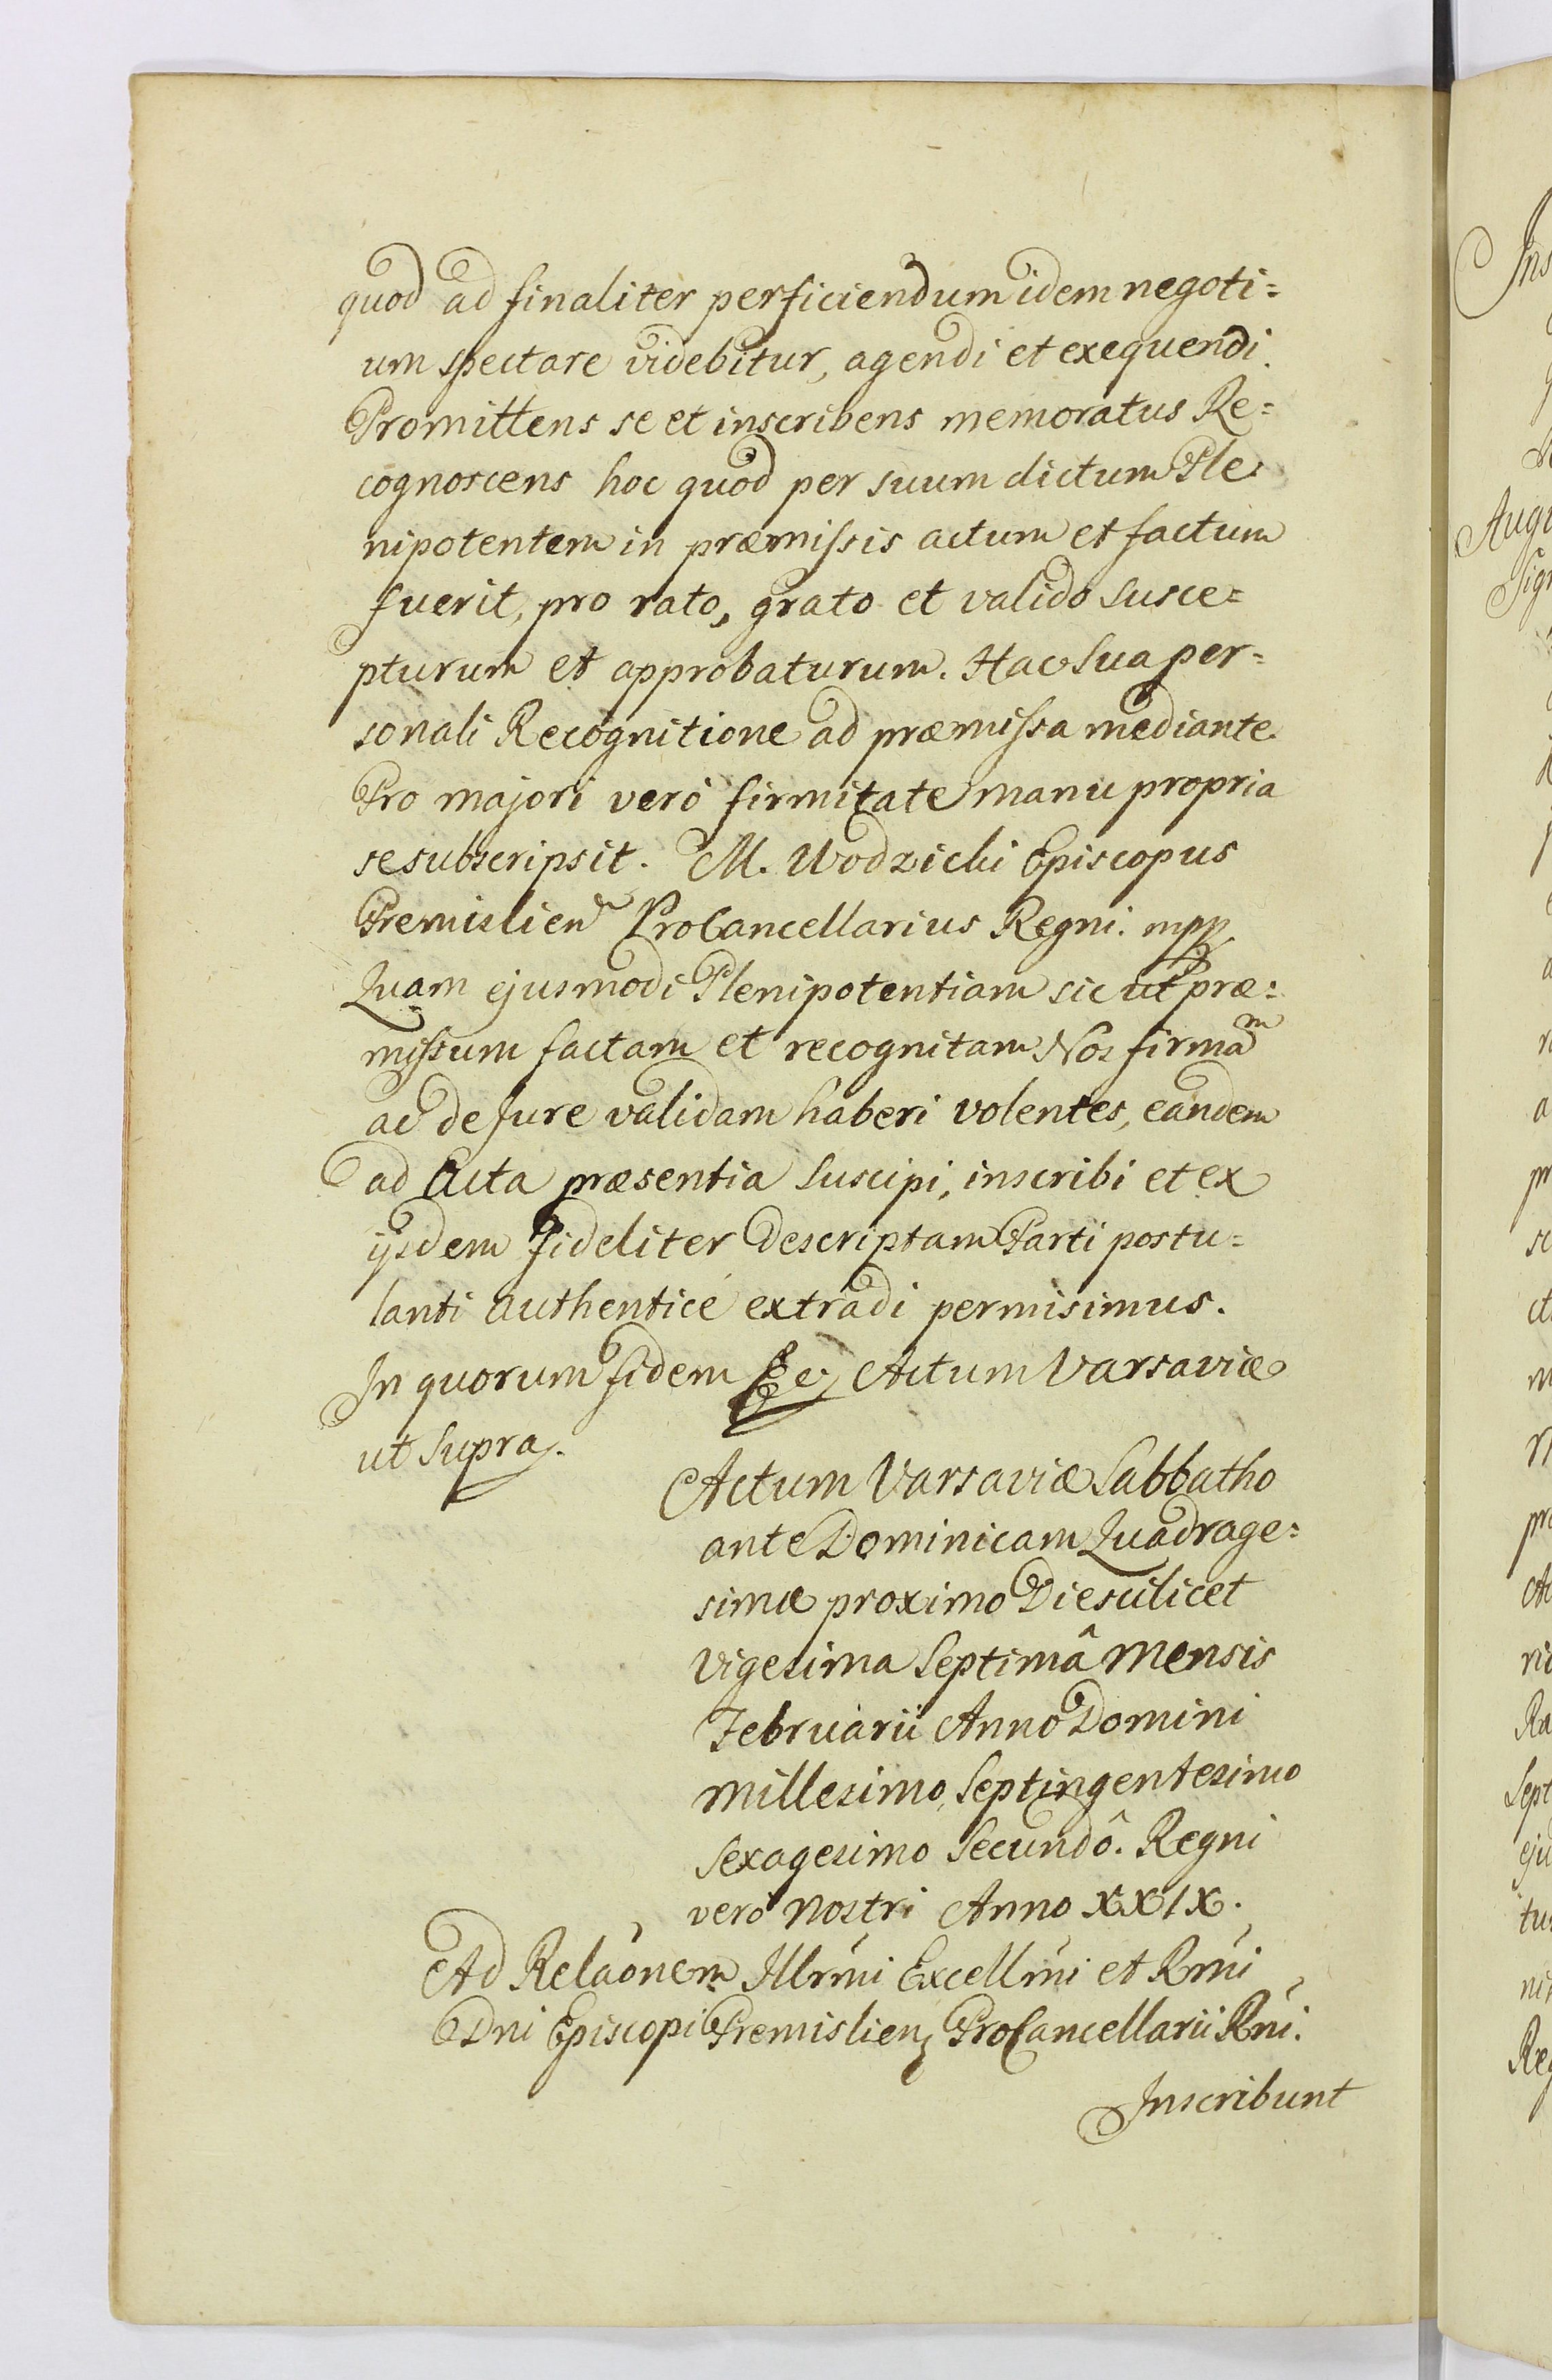 quod ad finaliter perficiendum idem negoti=
um spectare videbitur, agendi et exequendi.
Promittens se et inscribens memoratus Re=
cognoscens hoc quod per suum dictum Ple
nipotentem in præmissis actum et factum
fuerit, pro rato, grato et valido susce=
pturum et approbaturum. Hac sua per=
sonali Recognitione ad præmissa mediante.
Pro majori verò firmitate manu propria
se subscripsit. M. Wodzicki Episcopus
Premislien ProCancellarius Regni. mpp
Quam ejusmodi Plenipotentiam sic ut præ=
missum factam et recognitam Nos firmam
ac de Jure validam haberi volentes, eandem
ad Acta præsentia suscipi, inscribi et ex
ijsdem fideliter descriptam Parti postu=
lanti authenticè extradi permisimus.
In quorum fidem &c. Actum Varsaviæ
ut supra.
Actum Varsaviæ Sabbatho
ante Dominicam Quadrage=
simæ proximo Die scilicet
Vigesima Septimâ Mensis
Februarii Anno Domini
Millesimo, Septingentesimo
Sexagesimo Secundô. Regni
verò nostri Anno XXIX.
Ad Relaõnem Illrmi Excellmi et Rmi
Dni Episcopi Premislien ProCancellarii Rni.
Inscribunt